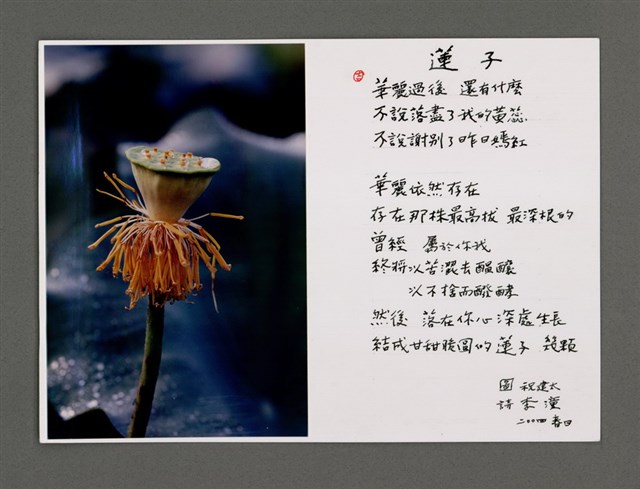 蓮子
華麗過後 還有什麼
不說落盡了我的黃蕊
不說謝别了昨日嫣紅
華麗依然存在
存在那株最高拔 最深根的
曾經 屬於你我
終將以苦澀去醞釀
以不捨而醱酵
然後 落在你心深處生長
結成甘甜睫圓的蓮子 幾顆
圖 祝建太
詩 李瀅
二〇〇四 春日